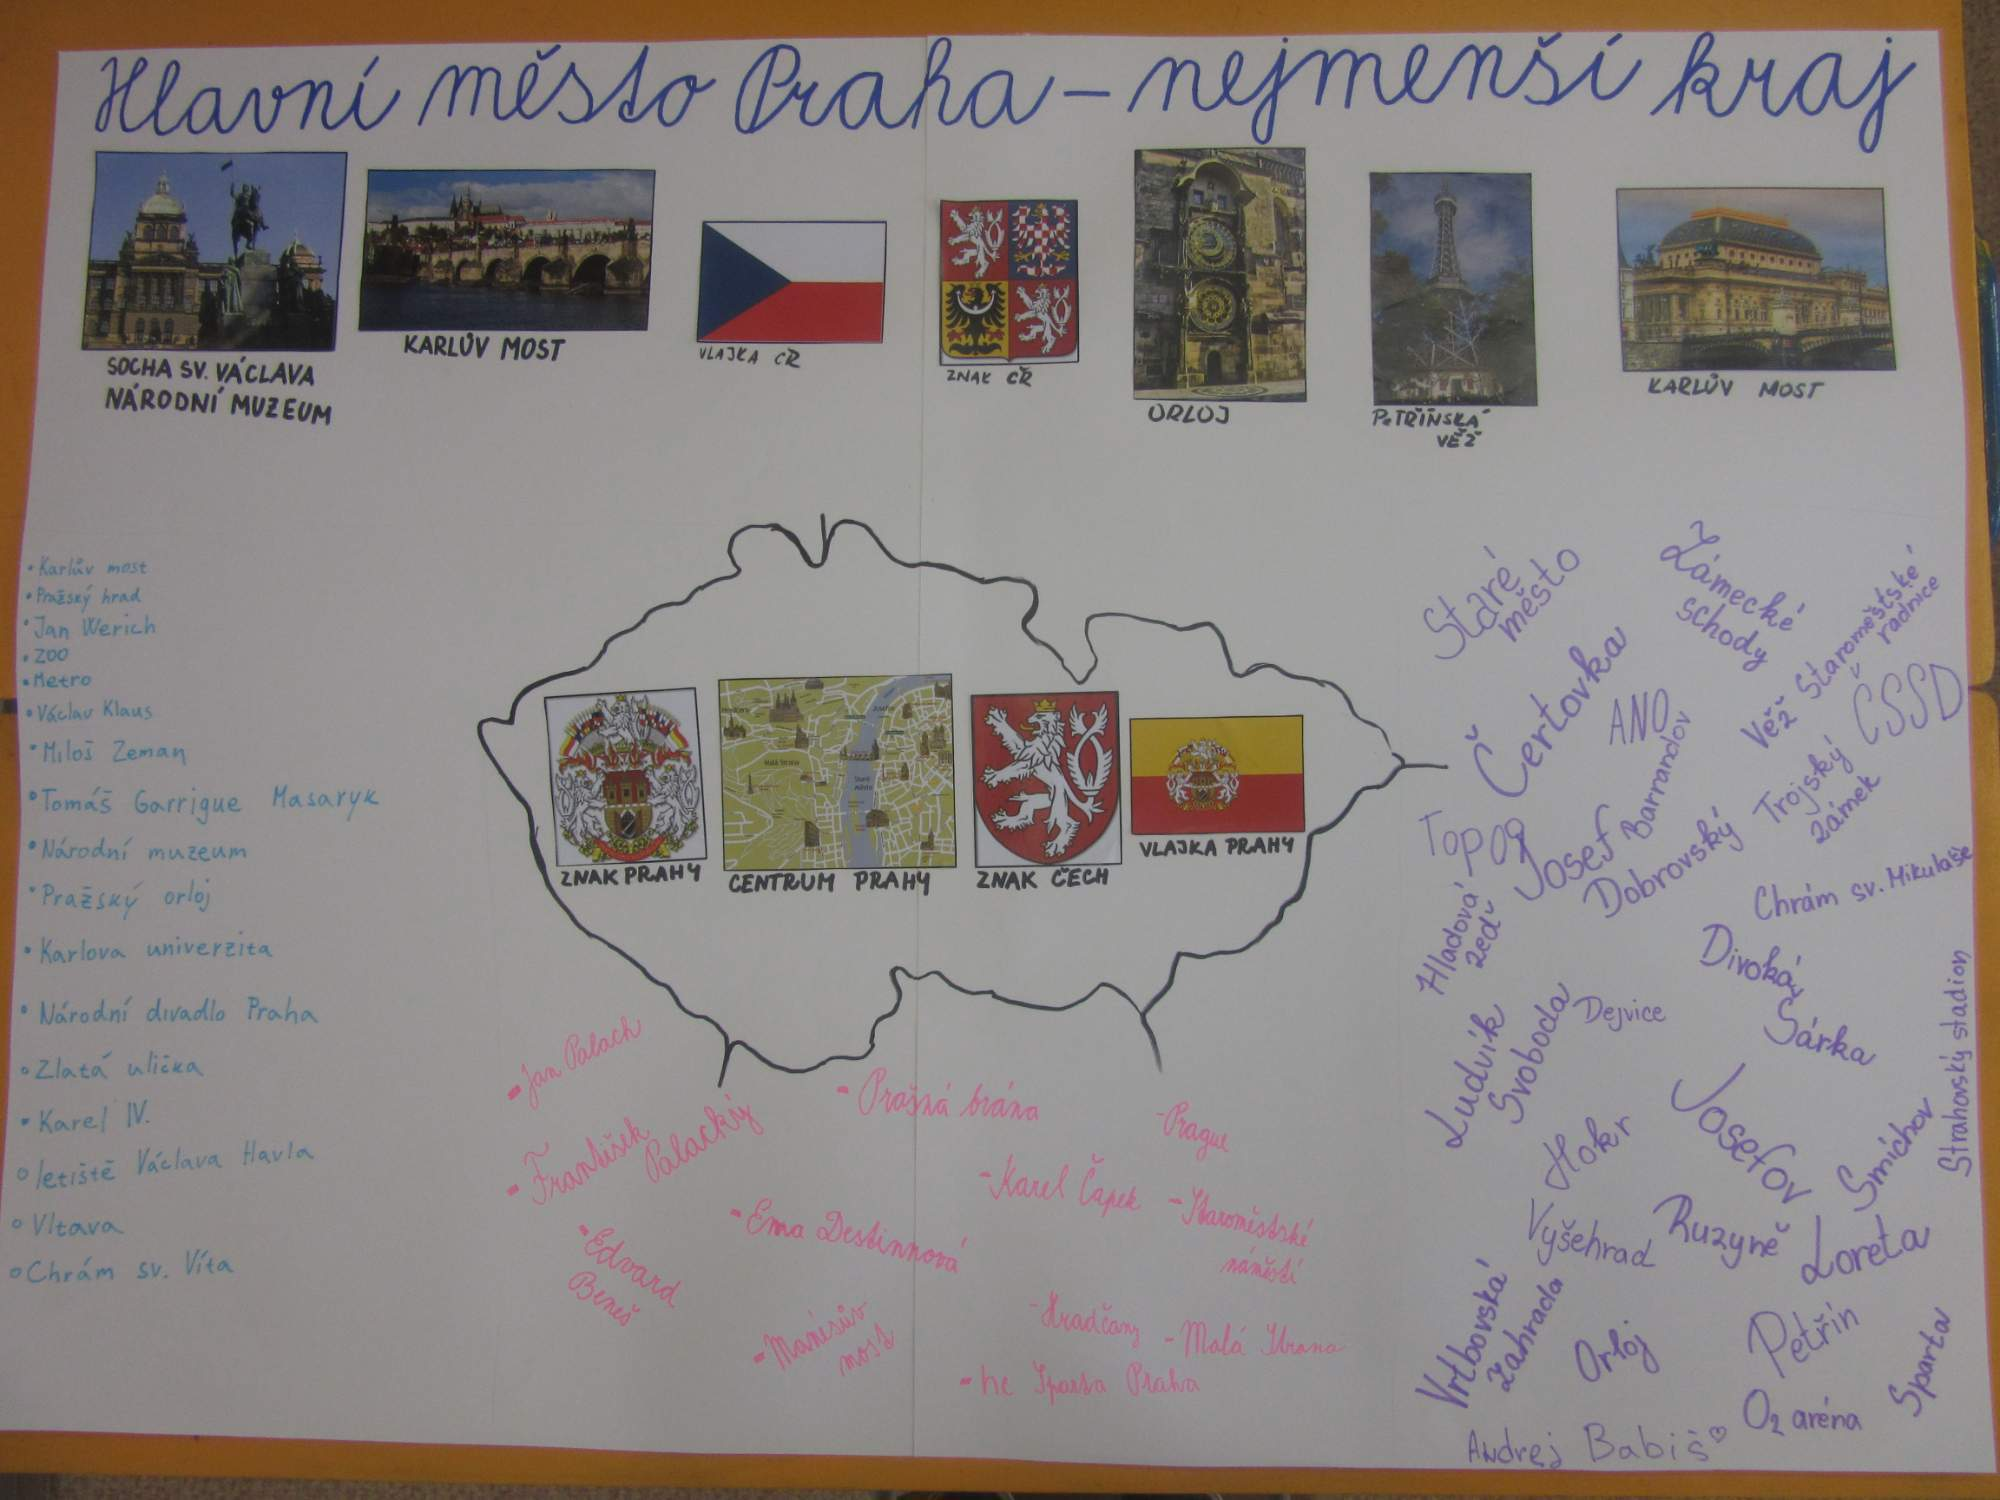 Hlavní město Praha – nejmenší kraj
SOCHA SV. VÁCLAVA
NÁRODNÍ MUZEUM
KARLŮV MOST
VLAJKA ČR
ZNAK ČR
ORLOJ
PETŘÍNSKÁ
VĚŽ
KARLŮV MOST
• Karlův most
• Pražský hrad
• Jan Werich
• ZOO
• Metro
• Václav Klaus
• Miloš Zeman
• Tomáš Garrigue Masaryk
• Národní muzeum
• Pražský orloj
• Karlova univerzita
• Národní divadlo Praha
• Zlatá ulička
• Karel IV.
• letiště Václava Havla
• Vltava
• Chrám sv. Víta
ZNAK PRAHY
Malá Strana
Staré
Město
CENTRUM PRAHY
ZNAK ČECH
VLAJKA PRAHY
- Jan Palach
- František
Palacký
- Edvard
Beneš
- Ema Destinnová
- Manésův
most
- Prašná brána
- Prague
- Karel Čapek
- Staroměstské
náměstí
- Hradčany
- Malá Strana
- hc Sparta Praha
Staré
město
Zámecké
schody
Věž Staroměstské
radnice
Čertovka
ANO
ČSSD
Barrandov
Trojský
zámek
Top 09
Josef
Dobrovský
Chrám sv. Mikuláše
Hladová
zeď
Divoká
Šárka
Strahovský stadion
Ludvík
Svoboda
Dejvice
Hokr
Josefov
Smíchov
Vyšehrad
Ruzyně
Loreta
Vrtbovská
zahrada
Orloj
Petřín
Sparta
O2 aréna
Andrej Babiš ♡